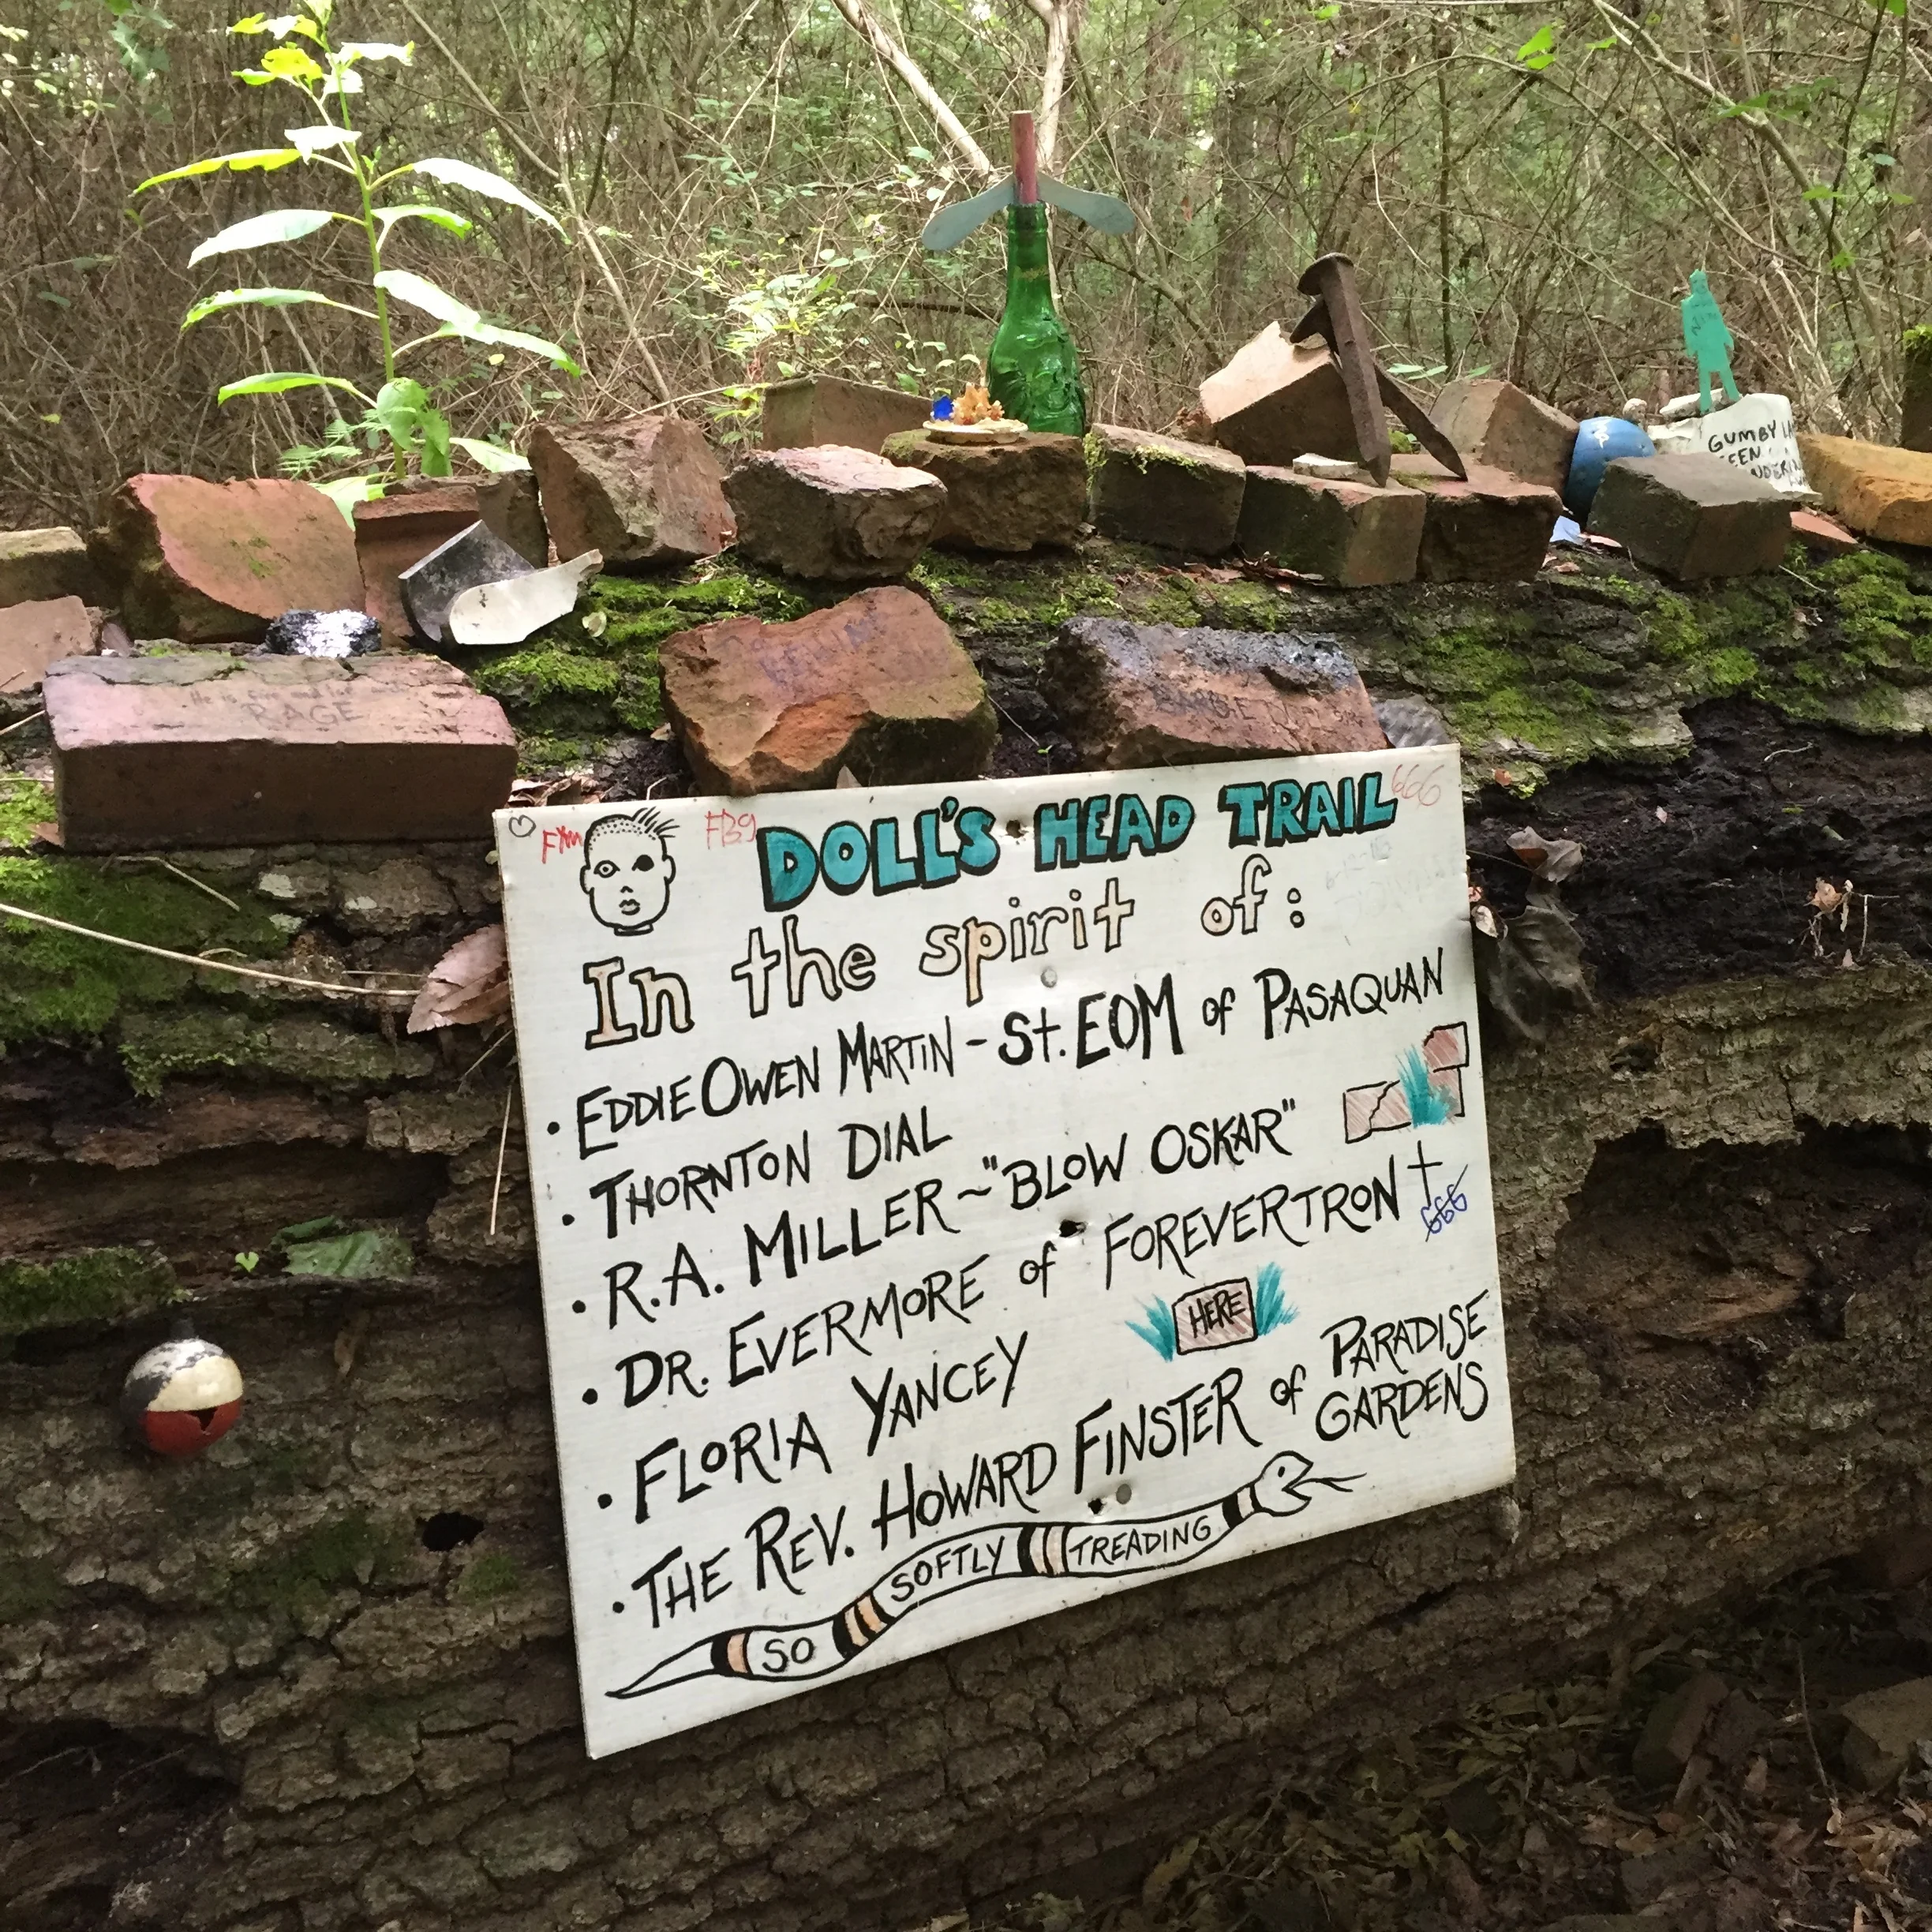 GUMBY LA
RAGE
DOLL'S HEAD TRAIL
666
In the spirit of:
• EDDIE OWEN MARTIN - St. EOM of PASAQUAN
• THORNTON DIAL
• R.A. MILLER ~ "BLOW OSKAR"
• DR. EVERMORE of FOREVERTRON
666
HERE
• FLORIA YANCEY
• THE REV. HOWARD FINSTER of PARADISE GARDENS
SO SOFTLY TREADING